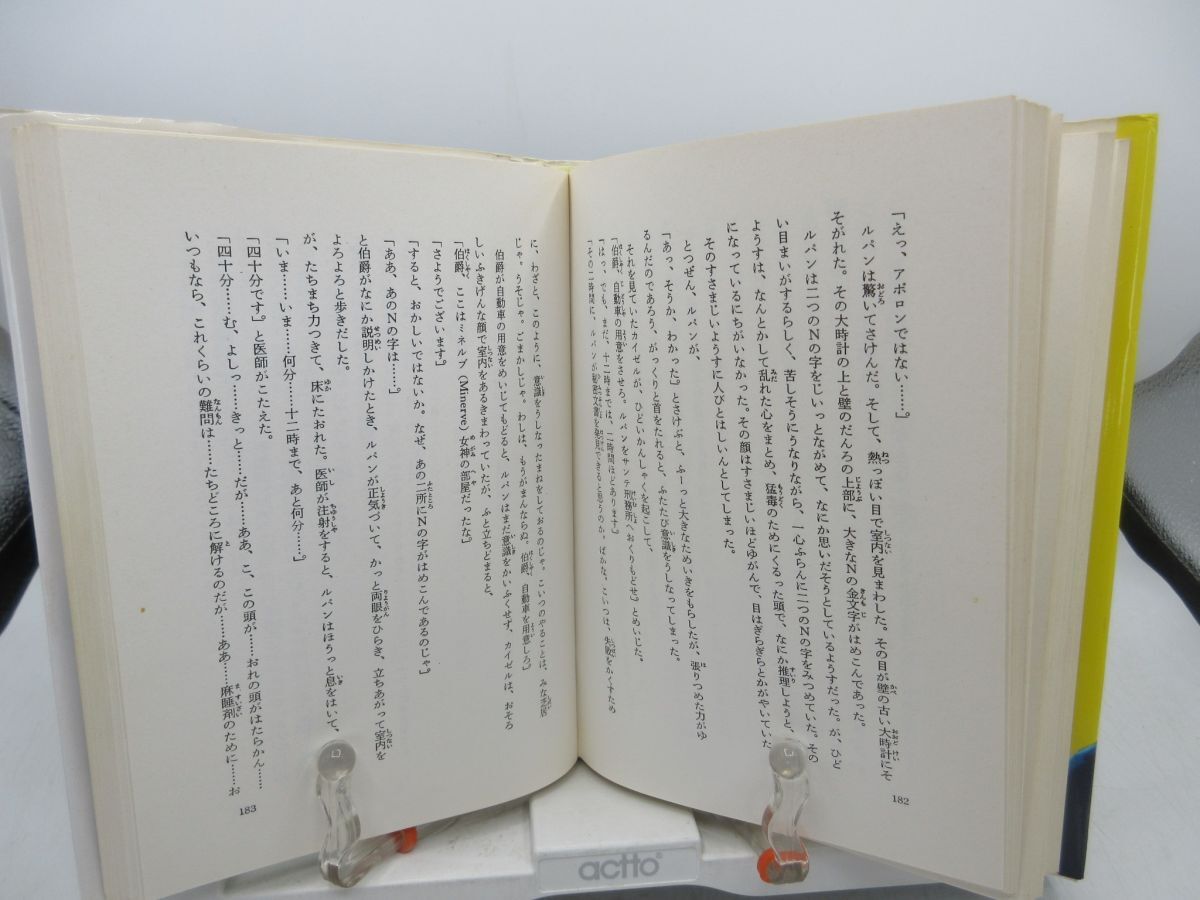 「えっ、アポロンではない……。」
ルパンは驚いてさけんだ。そして、熱っぽい目で室内を見まわした。その目が壁の古い大時計にそ
そがれた。その大時計の上と壁のだんろの上部に、大きなNの金文字がはめこんであった。
ルパンは二つのNの字をじいっとながめて、なにか思いだそうとしているようすだった。が、ひど
い目まいがするらしく、苦しそうにうなりながら、一心ふらんに二つのNの字をみつめていた。その
ようすは、なんとかして乱れた心をまとめ、猛毒のためにくるった頭で、なにか推理しようと、
になっているにちがいなかった。その顔はすさまじいほどゆがんで、目はぎらぎらとかがやいていた
そのすさまじいようすに人びとはしいんとしてしまった。
とつぜん、ルパンが、
「あっ、そうか、わかった。」とさけぶと、ふーっと大きなためいきをもらしたが、張りつめた力がゆ
るんだのであろう、がっくりと首をたれると、ふたたび意識をうしなってしまった。
それを見ていたカイゼルが、ひどいかんしゃくを起こして、
「伯爵、自動車の用意をさせろ。ルパンをサンテ刑務所へおくりもどせ。」とめいじた。
「はっ、でも、まだ、十二時までは、二時間ほどあります。」
「その二時間に、ルパンが秘密文書を発見できると思うのか。ばかな。こいつは、失敗をかくすため
に、わざと、このように、意識をうしなったまねをしておるのじゃ。こいつのやることは、みな芝居
じゃ。うそじゃ。ごまかしじゃ。わしは、もうがまんならぬ。伯爵、自動車を用意しろ。」
伯爵が自動車の用意をめいじてもどると、ルパンはまだ意識をかいふくせず、カイゼルは、おそろ
しいふきげんな顔で室内をあるきまわっていたが、ふと立ちどまると、
「伯爵、ここはミネルブ(Minerve)女神の部屋だったな。」
「さようでございます。」
「すると、おかしいではないか。なぜ、あの二所にNの字がはめこんであるのじゃ。」
「ああ、あのNの字は……。」
と伯爵がなにか説明しかけたとき、ルパンが正気づいて、かっと両眼をひらき、立ちあがって室内を
よろよろと歩きだした。
が、たちまち力つきて、床にたおれた。医師が注射をすると、ルパンはほうっと息をはいて、
「いま……いま……何分……十二時まで、あと何分……。」
「四十分です。」と医師がこたえた。
「四十分……む、よしっ……きっと……だが……ああ、こ、この頭が……おれの頭がはたらかん……
いつもなら、これくらいの難問は……たちどころに解けるのだが……ああ……麻睡剤のために……お
182
183
actto